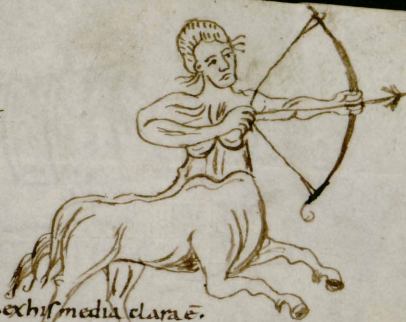 exhis media clara ē.